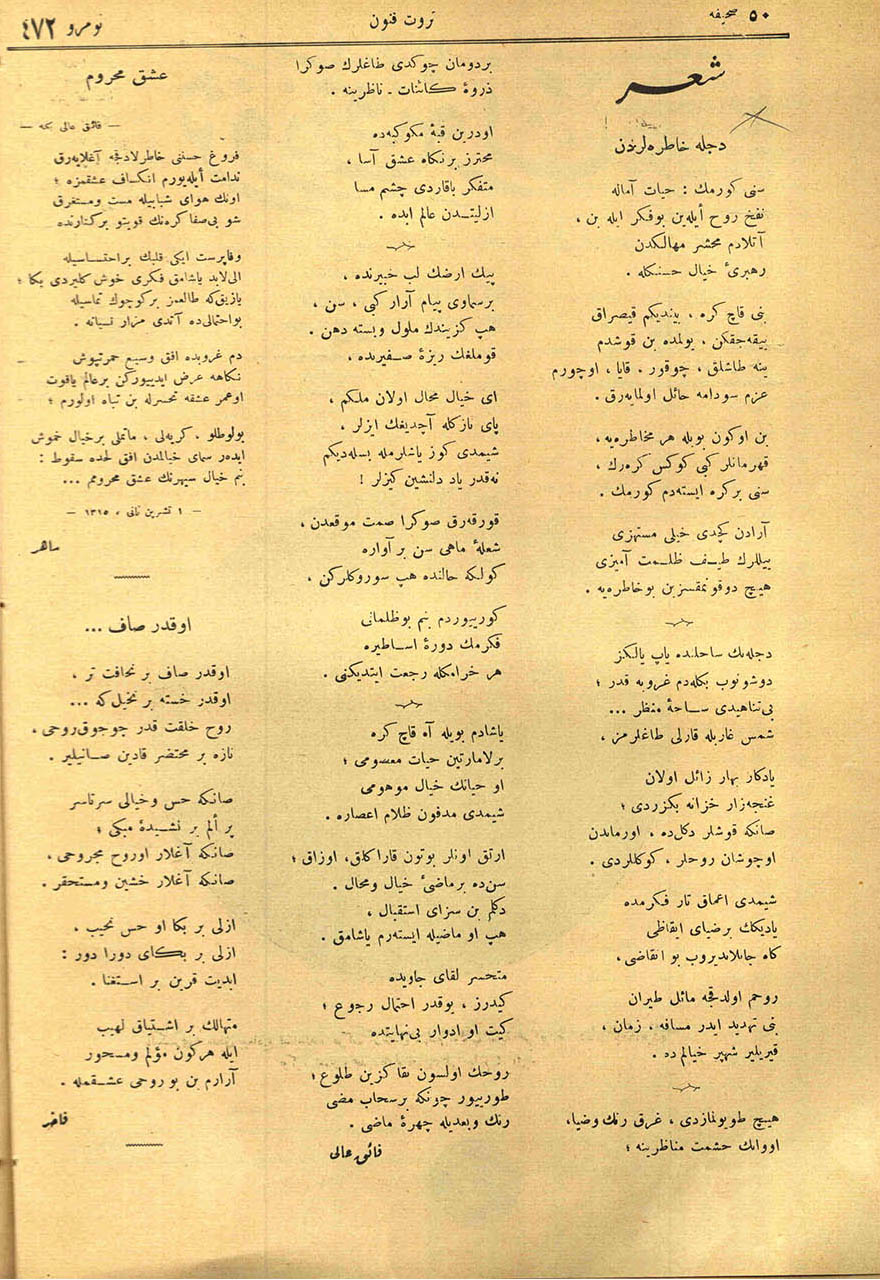 ٥٠ صحیفه
ثروت فنون
نومرو ٤٧٢
شعر
دجله خاطره‌لرندن
سنی کورمك : حیات آماله
نفخ روح أیله‌ین بوفکر ایله بن ،
آتلادم محشر مهالکدن
رهبرئ خیال حسنکله .
بنی قاچ کره ، بیندیکم قیصراق
بیقه‌جقکن ، یولمده بن قوشدم
ینه طاشلق ، چوقور . قایا ، اوچورم
عزم سودامه حائل اولمایه‌رق .
بن اوکون بویله هر مخاطره‌یه ،
قهرمانلر کبی کوکس کره‌رك ،
سنی برکره ایسته‌دم کورمك .
آرادن کچدی خیلی مستهزی
ییللرك طیف ظلمت آمیزی
هیچ دوقونمقسزین بوخاطره‌یه .
دجله‌نك ساحلنده یاپ یالکز
دوشونوب بکله‌دم غروبه قدر ؛
بی‌تناهیدی ساحهٔ منظر ...
شمس غاربله قارلی طاغلرمز ،
یادکار بهار زائل اولان
غنجه‌زار خزانه بکزردی ؛
صانکه قوشلر دکل‌ده ، اورماندن
اوچوشان روحلر ، کوکللردی .
شیمدی اعماق تار فکرمده
یادیکك برضیای ایقاظی
کاه جانلاندیروب بو انقاضی ،
روحم اولدقجه مائل طیران
بنی تهدید ایدر مسافه ، زمان ،
قیریلیر شهپر خیالم‌ده .
هیچ طویولمازدی ، غرق رنك وضیا ،
اووانك حشمت مناظرینه ؛
بردومان چوکدی طاغلرك صوکرا
ذروهٔ کائنات ـ ناظرینه .
اودرین قبهٔ مکوکبه‌ده
محترز برنکاه عشق آسا ،
متفکر باقاردی چشم مسا
ازلیتدن عالم ابده .
پیك ارضك لب خبیرنده ،
برسماوی پیام آزار کبی ، سن ،
هپ کزیندك ملول وبسته دهن .
قوملغك ریزهٔ صفیرنده ،
ای خیال محال اولان ملکم ،
پای نازکله آچدیغك ایزلر ،
شیمدی کوز یاشلرمله بسله‌دیکم
نه‌قدر یاد دلنشین کیزلر !
قورقه‌رق صوکرا صمت موقعدن ،
شعلهٔ ماهی سن بر آواره
کولکه حالنده هپ سوروکلرکن ،
کورییوردم بنم بوظلمانی
فکرمك دورهٔ اساطیره
هر خرامکله رجعت ایتدیکنی .
یاشادم بویله آه قاچ کره
برلامارتین حیات معسومی ؛
او حیاتك خیال موهومی
شیمدی مدفون ظلام اعصاره .
ارتق اونلر بوتون قاراکلق، اوزاق ؛
سن‌ده برماضئ خیال ومحال .
دکلم بن سزای استقبال ،
هپ او ماضیله ایسته‌رم یاشامق .
متحسر لقای جاویده
کیدرز ، یوقدر احتمال رجوع ؛
کیت او ادوار بی‌نهایتده
روحك اولسون بقاکزین طلوع ؛
طورییور چونکه برسحاب مضی
رنك وبعدیله چهرهٔ ماضی .
فائق عالی
عشق محروم
— فائق عالی بکه —
فروغ حسنی خاطرلادقجه آغلایه‌رق
ندامت أیله‌یورم انکساف عشقمزه ؛
اونك هوای شبابیله مست ومستغرق
شو بی‌صفا کره‌نك قویتو برکنارنده
وفاپرست ایکی قلبك براحتساسیله
الی‌الابد یاشامق فکری خوش کلیردی بکا ؛
یازیق‌که طالعمز برکوچوك تماسیله
بواحتمالی‌ده آتدی مزار نسیانه .
دم غروبده افق وسیع حمرتپوش
نکاهه عرض ایدییورکن برعالم یاقوت
اوعمر عشقه تحسرله بن تباه اولورم ؛
بولوطلو . کریه‌لی ، ماتملی برخیال خموش
ایده‌ر سمای خیالمدن افق لحده سقوط :
بنم خیال سپهرنك عشق محرومم ...
— ١ تشرین ثانی ، ١٣١٥ —
ماهر
اوقدر صاف ...
اوقدر صاف بر نحافت تر ،
اوقدر خسته بر تخیل‌که ...
روح خلقت قدر چوجوق‌روحی ،
تازه بر محتضر قادین صانیلیر .
صانکه حس وخیالی سرتاسر
پر ألم بر نشیدهٔ مبکی ؛
صانکه آغلار اوروح مجروحی ،
صانکه آغلار خشین ومستحقر .
ازلی بر بکا او حس نحیب .
ازلی بر بکای دورا دور :
ابدیت قرین بر استغنا .
متهالك بر اشتیاق لهیب
ایله هرکون مؤلم ومسحور
آرارم بن بو روحی عشقمله .
فاخر